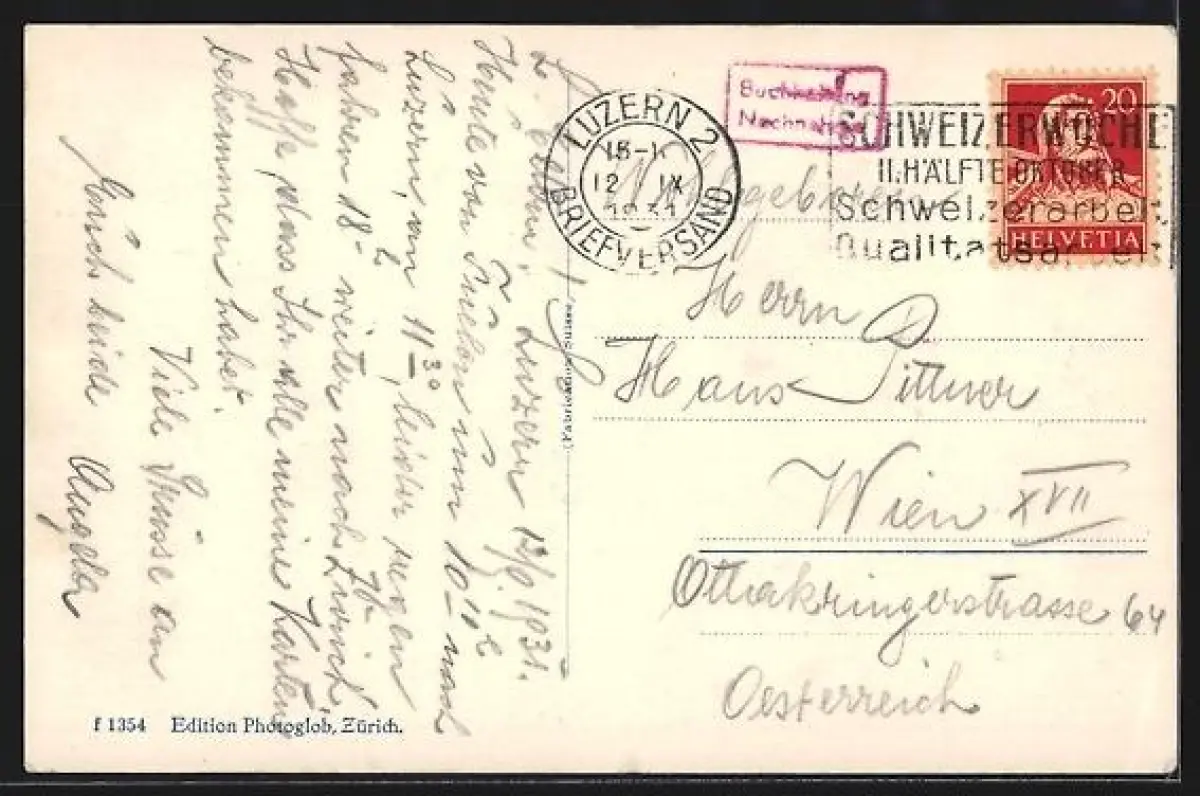 Luzern, 12/9. 1931.
Heute von um 10 11 h nach
Luzern, an 11 30, leider regen
fahren 18 h weiter nach Zürich.
Hoffe, dass Ihr alle meine Karten
bekommen habet.
Viele Grüsse an
Euch beide Angela
Buchhaltung
Nachnahme
LUZERN 2
12 IX
1931
BRIEFVERSAND
SCHWEIZERWOCHE
II. HÄLFTE OKTOBER
Schweizerarbeit
Qualitätsarbeit
20
HELVETIA
Herrn
Hans Pittner
Wien XVII
Ottakringerstrasse 64
Oesterreich
f 1354 Edition Photoglob, Zürich.